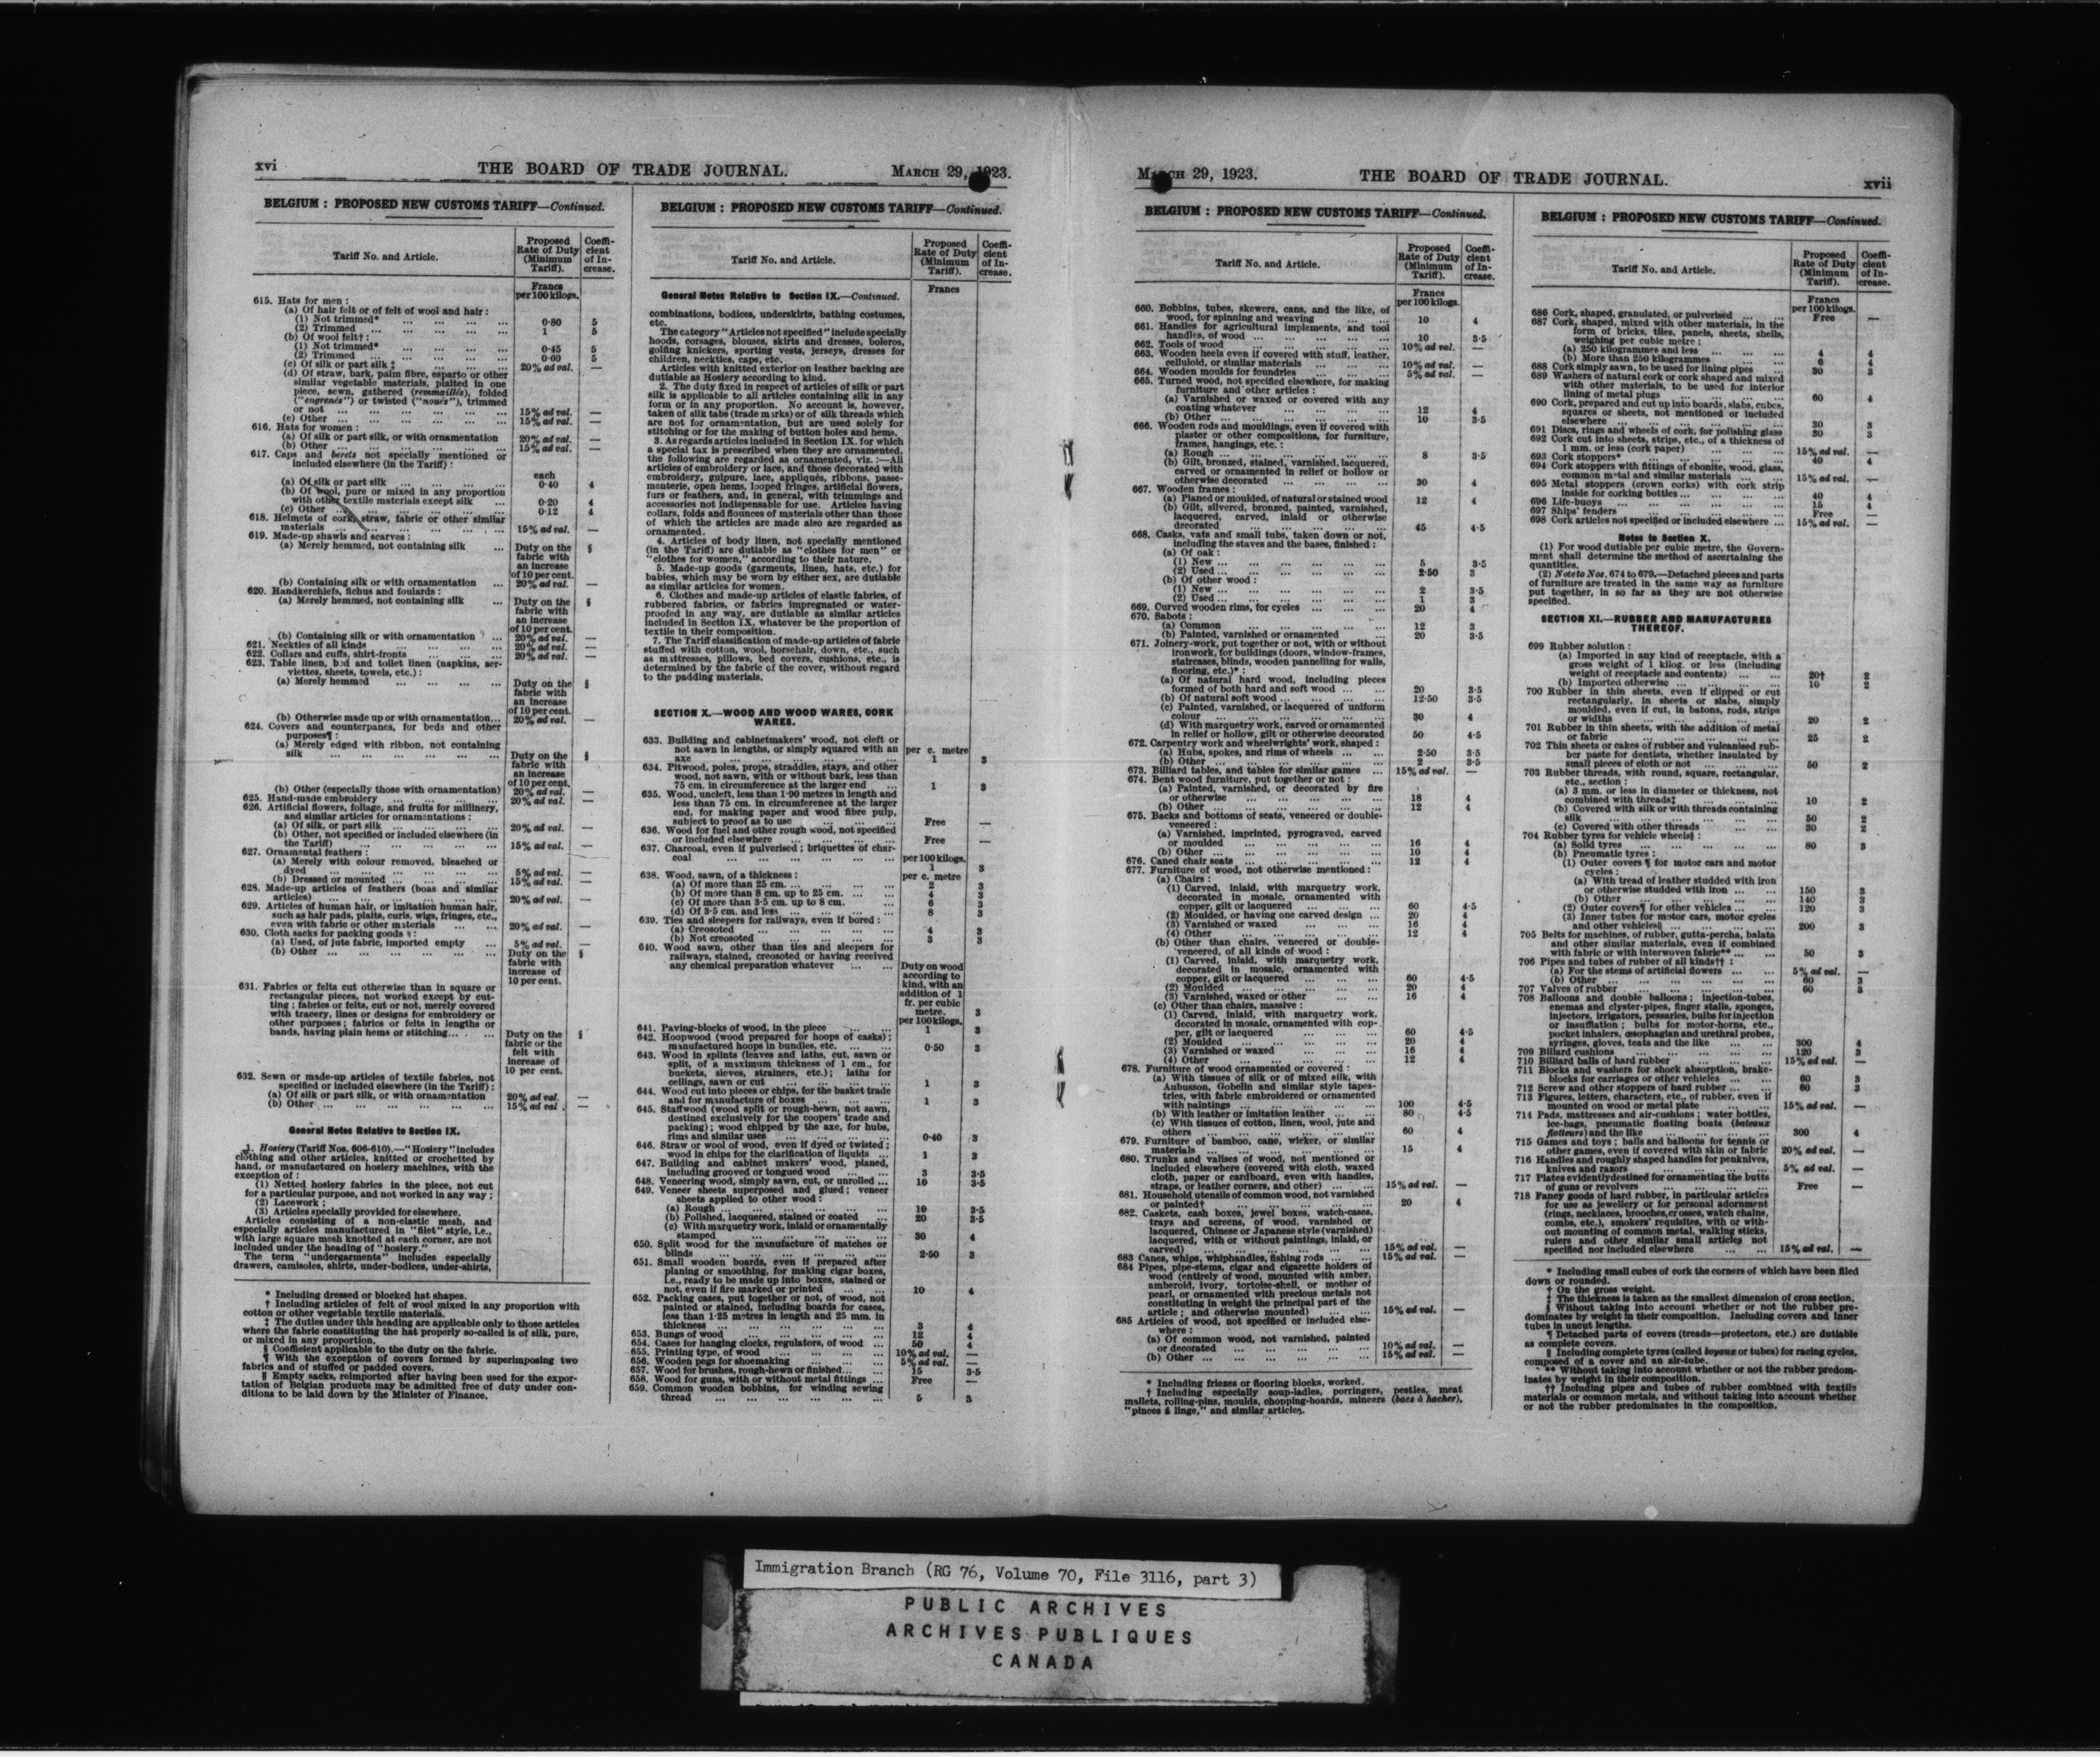 xvi THE BOARD OF TRADE JOURNAL. MARCH 29, 1923.
BELGIUM : PROPOSED NEW CUSTOMS TARIFF—Continued.
Tariff No. and Article.
Proposed Rate of Duty (Minimum Tariff).
Coeffi-cient of In-crease.
Francs per 100 kilogs.
615. Hats for men :
(a) Of hair felt or of felt of wool and hair :
(1) Not trimmed* ... ... ... ... 0·80 5
(2) Trimmed ... ... ... ... 1 5
(b) Of wool felt† :
(1) Not trimmed* ... ... ... ... 0·45 5
(2) Trimmed ... ... ... ... 0·60 5
(c) Of silk or part silk ‡ ... ... ... 20% ad val. —
(d) Of straw, bark, palm fibre, esparto or other
similar vegetable materials, plaited in one
piece, sewn, gathered (remmaillés), folded
("engrenés") or twisted ("noués"), trimmed
or not ... ... ... ... ... 15% ad val. —
(e) Other ... ... ... ... ... 15% ad val. —
616. Hats for women :
(a) Of silk or part silk, or with ornamentation 20% ad val. —
(b) Other ... ... ... ... ... 15% ad val. —
617. Caps and berets not specially mentioned or
included elsewhere (in the Tariff) :
each
(a) Of silk or part silk ... ... ... 0·40 4
(b) Of wool, pure or mixed in any proportion
with other textile materials except silk ... 0·20 4
(c) Other ... ... ... ... ... 0·12 4
618. Helmets of cork, straw, fabric or other similar
materials ... ... ... ... ... 15% ad val. —
619. Made-up shawls and scarves :
(a) Merely hemmed, not containing silk ... Duty on the §
fabric with
an increase
of 10 per cent.
(b) Containing silk or with ornamentation ... 20% ad val. —
620. Handkerchiefs, fichus and foulards :
(a) Merely hemmed, not containing silk ... Duty on the §
fabric with
an increase
of 10 per cent.
(b) Containing silk or with ornamentation ... 20% ad val. —
621. Neckties of all kinds ... ... ... 20% ad val. —
622. Collars and cuffs, shirt-fronts ... ... ... 20% ad val. —
623. Table linen, bed and toilet linen (napkins, ser-
viettes, sheets, towels, etc.) :
(a) Merely hemmed ... ... ... ... Duty on the §
fabric with
an increase
of 10 per cent.
(b) Otherwise made up or with ornamentation... 20% ad val. —
624. Covers and counterpanes, for beds and other
purposes¶ :
(a) Merely edged with ribbon, not containing
silk ... ... ... ... ... Duty on the §
fabric with
an increase
of 10 per cent.
(b) Other (especially those with ornamentation) 20% ad val. —
625. Hand-made embroidery ... ... ... 20% ad val. —
626. Artificial flowers, foliage, and fruits for millinery,
and similar articles for ornamentations :
(a) Of silk, or part silk ... ... ... 20% ad val. —
(b) Other, not specified or included elsewhere (in
the Tariff) ... ... ... ... 15% ad val. —
627. Ornamental feathers :
(a) Merely with colour removed, bleached or
dyed ... ... ... ... ... 5% ad val. —
(b) Dressed or mounted ... ... ... 15% ad val. —
628. Made-up articles of feathers (boas and similar
articles) ... ... ... ... ... 20% ad val. —
629. Articles of human hair, or imitation human hair,
such as hair pads, plaits, curls, wigs, fringes, etc.,
even with fabric or other materials ... ... 20% ad val. —
630. Cloth sacks for packing goods :
(a) Used, of jute fabric, imported empty ... 5% ad val. —
(b) Other ... ... ... ... ... Duty on the §
fabric with
increase of
10 per cent.
631. Fabrics or felts cut otherwise than in square or
rectangular pieces, not worked except by cut-
ting ; fabrics or felts, cut or not, merely covered
with tracery, lines or designs for embroidery or
other purposes ; fabrics or felts in lengths or
bands, having plain hems or stitching... ... Duty on the §
fabric or the
felt with
increase of
10 per cent.
632. Sewn or made-up articles of textile fabrics, not
specified or included elsewhere (in the Tariff) :
(a) Of silk or part silk, or with ornamentation 20% ad val. —
(b) Other ... ... ... ... ... 15% ad val. —
General Notes Relative to Section IX.
1. Hosiery (Tariff Nos. 606-610).—"Hosiery" includes
clothing and other articles, knitted or crochetted by
hand, or manufactured on hosiery machines, with the
exception of :
(1) Netted hosiery fabrics in the piece, not cut
for a particular purpose, and not worked in any way ;
(2) Lacework ;
(3) Articles specially provided for elsewhere.
Articles consisting of a non-elastic mesh, and
especially articles manufactured in "filet" style, i.e.,
with large square mesh knotted at each corner, are not
included under the heading of "hosiery."
The term "undergarments" includes especially
drawers, camisoles, shirts, under-bodices, under-shirts,
* Including dressed or blocked hat shapes.
† Including articles of felt of wool mixed in any proportion with
cotton or other vegetable textile materials.
‡ The duties under this heading are applicable only to those articles
where the fabric constituting the hat properly so-called is of silk, pure,
or mixed in any proportion.
§ Coefficient applicable to the duty on the fabric.
¶ With the exception of covers formed by superimposing two
fabrics and of stuffed or padded covers.
|| Empty sacks, reimported after having been used for the expor-
tation of Belgian products may be admitted free of duty under con-
ditions to be laid down by the Minister of Finance.
BELGIUM : PROPOSED NEW CUSTOMS TARIFF—Continued.
Tariff No. and Article.
Proposed Rate of Duty (Minimum Tariff).
Coeffi-cient of In-crease.
Francs
General Notes Relative to Section IX.—Continued.
combinations, bodices, underskirts, bathing costumes,
etc.
The category "Articles not specified" include specially
hoods, corsages, blouses, skirts and dresses, boleros,
golfing knickers, sporting vests, jerseys, dresses for
children, neckties, caps, etc.
Articles with knitted exterior on leather backing are
dutiable as Hosiery according to kind.
2. The duty fixed in respect of articles of silk or part
silk is applicable to all articles containing silk in any
form or in any proportion. No account is, however,
taken of silk tabs (trade marks) or of silk threads which
are not for ornamentation, but are used solely for
stitching or for the making of button holes and hems.
3. As regards articles included in Section IX. for which
a special tax is prescribed when they are ornamented,
the following are regarded as ornamented, viz. :—All
articles of embroidery or lace, and those decorated with
embroidery, guipure, lace, appliqués, ribbons, passe-
menterie, open hems, looped fringes, artificial flowers,
furs or feathers, and, in general, with trimmings and
accessories not indispensable for use. Articles having
collars, folds and flounces of materials other than those
of which the articles are made also are regarded as
ornamented.
4. Articles of body linen, not specially mentioned
(in the Tariff) are dutiable as "clothes for men" or
"clothes for women," according to their nature.
5. Made-up goods (garments, linen, hats, etc.) for
babies, which may be worn by either sex, are dutiable
as similar articles for women.
6. Clothes and made-up articles of elastic fabrics, of
rubbered fabrics, or fabrics impregnated or water-
proofed in any way, are dutiable as similar articles
included in Section IX, whatever be the proportion of
textile in their composition.
7. The Tariff classification of made-up articles of fabric
stuffed with cotton, wool, horsehair, down, etc., such
as mattresses, pillows, bed covers, cushions, etc., is
determined by the fabric of the cover, without regard
to the padding materials.
SECTION X.—WOOD AND WOOD WARES, CORK
WARES.
633. Building and cabinetmakers' wood, not cleft or
not sawn in lengths, or simply squared with an per c. metre
axe ... ... ... ... ... 1 3
634. Pitwood, poles, props, straddles, stays, and other
wood, not sawn, with or without bark, less than
75 cm. in circumference at the larger end ... 1 3
635. Wood, uncleft, less than 1·90 metres in length and
less than 75 cm. in circumference at the larger
end, for making paper and wood fibre pulp,
subject to proof as to use ... ... ... Free —
636. Wood for fuel and other rough wood, not specified
or included elsewhere ... ... ... Free —
637. Charcoal, even if pulverised ; briquettes of char-
coal ... ... ... ... ... per 100 kilogs.
1 3
638. Wood, sawn, of a thickness : per c. metre
(a) Of more than 25 cm. ... ... ... 2 3
(b) Of more than 8 cm. up to 25 cm. ... ... 4 3
(c) Of more than 3·5 cm. up to 8 cm. ... 6 3
(d) Of 3·5 cm. and less ... ... ... 8 3
639. Ties and sleepers for railways, even if bored :
(a) Creosoted ... ... ... ... 4 3
(b) Not creosoted ... ... ... ... 3 3
640. Wood sawn, other than ties and sleepers for
railways, stained, creosoted or having received
any chemical preparation whatever ... ... Duty on wood
according to
kind, with an
addition of 1
fr. per cubic
metre. 3
per 100 kilogs.
641. Paving-blocks of wood, in the piece ... ... 1 3
642. Hoopwood (wood prepared for hoops of casks) ;
manufactured hoops in bundles, etc. ... ... 0·50 3
643. Wood in splints (leaves and laths, cut, sawn or
split, of a maximum thickness of 1 cm., for
buckets, sieves, strainers, etc.) ; laths for
ceilings, sawn or cut ... ... ... 1 3
644. Wood cut into pieces or chips, for the basket trade
and for manufacture of boxes ... ... ... 1 3
645. Staffwood (wood split or rough-hewn, not sawn,
destined exclusively for the coopers' trade and
packing) ; wood chipped by the axe, for hubs,
rims and similar uses ... ... ... 0·40 3
646. Straw or wool of wood, even if dyed or twisted ;
wood in chips for the clarification of liquids ... 1 3
647. Building and cabinet makers' wood, planed,
including grooved or tongued wood ... ... 3 3·5
648. Veneering wood, simply sawn, cut, or unrolled ... 10 3·5
649. Veneer sheets superposed and glued ; veneer
sheets applied to other wood :
(a) Rough ... ... ... ... ... 10 3·5
(b) Polished, lacquered, stained or coated ... 20 3·5
(c) With marquetry work, inlaid or ornamentally
stamped ... ... ... ... ... 30 4
650. Split wood for the manufacture of matches or
blinds ... ... ... ... ... 2·50 3
651. Small wooden boards, even if prepared after
planing or smoothing, for making cigar boxes,
i.e., ready to be made up into boxes, stained or
not, even if fire marked or printed ... ... 10 4
652. Packing cases, put together or not, of wood, not
painted or stained, including boards for cases,
less than 1·25 metres in length and 25 mm. in
thickness ... ... ... ... ... 3 4
653. Bungs of wood ... ... ... ... 12 4
654. Cases for hanging clocks, regulators, of wood ... 50 4
655. Printing type, of wood ... ... ... 10% ad val. —
656. Wooden pegs for shoemaking ... ... ... 5% ad val. —
657. Wood for brushes, rough-hewn or finished... ... 15 3·5
658. Wood for guns, with or without metal fittings ... Free —
659. Common wooden bobbins, for winding sewing
thread ... ... ... ... ... 5 3
MARCH 29, 1923. THE BOARD OF TRADE JOURNAL. xvii
BELGIUM : PROPOSED NEW CUSTOMS TARIFF—Continued.
Tariff No. and Article.
Proposed Rate of Duty (Minimum Tariff).
Coeffi-cient of In-crease.
Francs per 100 kilogs.
660. Bobbins, tubes, skewers, cans, and the like, of
wood, for spinning and weaving ... ... 10 4
661. Handles for agricultural implements, and tool
handles, of wood ... ... ... ... 10 3·5
662. Tools of wood ... ... ... ... 10% ad val. —
663. Wooden heels even if covered with stuff, leather,
celluloid, or similar materials ... ... ... 10% ad val. —
664. Wooden moulds for foundries ... ... ... 5% ad val. —
665. Turned wood, not specified elsewhere, for making
furniture and other articles :
(a) Varnished or waxed or covered with any
coating whatever ... ... ... ... 12 4
(b) Other ... ... ... ... ... 10 3·5
666. Wooden rods and mouldings, even if covered with
plaster or other compositions, for furniture,
frames, hangings, etc. :
(a) Rough ... ... ... ... ... 8 3·5
(b) Gilt, bronzed, stained, varnished, lacquered,
carved or ornamented in relief or hollow or
otherwise decorated ... ... ... ... 30 4
667. Wooden frames :
(a) Planed or moulded, of natural or stained wood 12 4
(b) Gilt, silvered, bronzed, painted, varnished,
lacquered, carved, inlaid or otherwise
decorated ... ... ... ... ... 45 4·5
668. Casks, vats and small tubs, taken down or not,
including the staves and the bases, finished :
(a) Of oak :
(1) New ... ... ... ... ... 5 3·5
(2) Used ... ... ... ... ... 2·50 3
(b) Of other wood :
(1) New ... ... ... ... ... 2 3·5
(2) Used ... ... ... ... ... 1 3
669. Curved wooden rims, for cycles ... ... ... 20 4
670. Sabots :
(a) Common ... ... ... ... 12 3
(b) Painted, varnished or ornamented ... 20 3·5
671. Joinery-work, put together or not, with or without
ironwork, for buildings (doors, window-frames,
staircases, blinds, wooden pannelling for walls,
flooring, etc.)* :
(a) Of natural hard wood, including pieces
formed of both hard and soft wood ... ... 20 3·5
(b) Of natural soft wood ... ... ... 12·50 3·5
(c) Painted, varnished, or lacquered of uniform
colour ... ... ... ... ... 30 4
(d) With marquetry work, carved or ornamented
in relief or hollow, gilt or otherwise decorated 50 4·5
672. Carpentry work and wheelwrights' work, shaped :
(a) Hubs, spokes, and rims of wheels ... ... 2·50 3·5
(b) Other ... ... ... ... ... 2 3·5
673. Billiard tables, and tables for similar games ... 15% ad val. —
674. Bent wood furniture, put together or not :
(a) Painted, varnished, or decorated by fire
or otherwise ... ... ... ... 18 4
(b) Other ... ... ... ... ... 12 4
675. Backs and bottoms of seats, veneered or double-
veneered :
(a) Varnished, imprinted, pyrograved, carved
or moulded ... ... ... ... 16 4
(b) Other ... ... ... ... ... 10 4
676. Caned chair seats ... ... ... ... 12 4
677. Furniture of wood, not otherwise mentioned :
(a) Chairs :
(1) Carved, inlaid, with marquetry work,
decorated in mosaic, ornamented with
copper, gilt or lacquered ... ... ... 60 4·5
(2) Moulded, or having one carved design ... 20 4
(3) Varnished or waxed ... ... ... 16 4
(4) Other ... ... ... ... ... 12 4
(b) Other than chairs, veneered or double-
veneered, of all kinds of wood :
(1) Carved, inlaid, with marquetry work,
decorated in mosaic, ornamented with
copper, gilt or lacquered ... ... ... 60 4·5
(2) Moulded ... ... ... ... 20 4
(3) Varnished, waxed or other ... ... 16 4
(c) Other than chairs, massive :
(1) Carved, inlaid, with marquetry work,
decorated in mosaic, ornamented with cop-
per, gilt or lacquered ... ... ... 60 4·5
(2) Moulded ... ... ... ... 20 4
(3) Varnished or waxed ... ... ... 16 4
(4) Other ... ... ... ... ... 12 4
678. Furniture of wood ornamented or covered :
(a) With tissues of silk or of mixed silk, with
Aubusson, Gobelin and similar style tapes-
tries, with fabric embroidered or ornamented
with paintings ... ... ... ... 100 4·5
(b) With leather or imitation leather ... ... 80 4·5
(c) With tissues of cotton, linen, wool, jute and
others ... ... ... ... ... 60 4
679. Furniture of bamboo, cane, wicker, or similar
materials ... ... ... ... ... 15 4
680. Trunks and valises of wood, not mentioned or
included elsewhere (covered with cloth, waxed
cloth, paper or cardboard, even with handles,
straps, or leather corners, and other) ... ... 15% ad val. —
681. Household utensils of common wood, not varnished
or painted† ... ... ... ... ... 20 4
682. Caskets, cash boxes, jewel boxes, watch-cases,
trays and screens, of wood, varnished or
lacquered, Chinese or Japanese style (varnished)
lacquered, with or without paintings, inlaid, or
carved) ... ... ... ... ... 15% ad val. —
683 Canes, whips, whiphandles, fishing rods ... ... 15% ad val. —
684 Pipes, pipe-stems, cigar and cigarette holders of
wood (entirely of wood, mounted with amber,
amberoid, ivory, tortoise-shell, or mother of
pearl, or ornamented with precious metals not
constituting in weight the principal part of the
article ; and otherwise mounted) ... ... 15% ad val. —
685 Articles of wood, not specified or included else-
where :
(a) Of common wood, not varnished, painted
or decorated ... ... ... ... 10% ad val. —
(b) Other ... ... ... ... ... 15% ad val. —
* Including friezes or flooring blocks, worked.
† Including especially soup-ladles, porringers, pestles, meat
mallets, rolling-pins, moulds, chopping-boards, mincers (bacs à hacher),
"pinces à linge," and similar articles.
BELGIUM : PROPOSED NEW CUSTOMS TARIFF—Continued.
Tariff No. and Article.
Proposed Rate of Duty (Minimum Tariff).
Coeffi-cient of In-crease.
Francs per 100 kilogs.
686 Cork, shaped, granulated, or pulverised ... ... Free —
687 Cork, shaped, mixed with other materials, in the
form of bricks, tiles, panels, sheets, shells,
weighing per cubic metre :
(a) 250 kilogrammes and less ... ... ... 4 4
(b) More than 250 kilogrammes ... ... 6 4
688 Cork simply sawn, to be used for lining pipes ... 30 3
689 Washers of natural cork or cork shaped and mixed
with other materials, to be used for interior
lining of metal plugs ... ... ... 60 4
690 Cork, prepared and cut up into boards, slabs, cubes,
squares or sheets, not mentioned or included
elsewhere ... ... ... ... ... 30 3
691 Discs, rings and wheels of cork, for polishing glass 30 3
692 Cork cut into sheets, strips, etc., of a thickness of
1 mm. or less (cork paper) ... ... ... 15% ad val. —
693 Cork stoppers* ... ... ... ... 40 4
694 Cork stoppers with fittings of ebonite, wood, glass,
common metal and similar materials ... ... 15% ad val. —
695 Metal stoppers (crown corks) with cork strip
inside for corking bottles ... ... ... 40 4
696 Life-buoys ... ... ... ... 15 4
697 Ships' fenders ... ... ... ... Free —
698 Cork articles not specified or included elsewhere ... 15% ad val. —
Notes to Section X.
(1) For wood dutiable per cubic metre, the Govern-
ment shall determine the method of ascertaining the
quantities.
(2) Note to Nos. 674 to 679.—Detached pieces and parts
of furniture are treated in the same way as furniture
put together, in so far as they are not otherwise
specified.
SECTION XI.—RUBBER AND MANUFACTURES
THEREOF.
699 Rubber solution :
(a) Imported in any kind of receptacle, with a
gross weight of 1 kilog. or less (including
weight of receptacle and contents) ... ... 20† 2
(b) Imported otherwise ... ... ... 10 2
700 Rubber in thin sheets, even if clipped or cut
rectangularly, in sheets or slabs, simply
moulded, even if cut, in batons, rods, strips
or widths ... ... ... ... 20 2
701 Rubber in thin sheets, with the addition of metal
or fabric ... ... ... ... ... 25 2
702 Thin sheets or cakes of rubber and vulcanised rub-
ber paste for dentists, whether insulated by
small pieces of cloth or not ... ... ... 50 2
703 Rubber threads, with round, square, rectangular,
etc., section :
(a) 3 mm. or less in diameter or thickness, not
combined with threads‡ ... ... ... 10 2
(b) Covered with silk or with threads containing
silk ... ... ... ... ... 50 2
(c) Covered with other threads ... ... 30 2
704 Rubber tyres for vehicle wheels§ :
(a) Solid tyres ... ... ... ... 80 3
(b) Pneumatic tyres :
(1) Outer covers ¶ for motor cars and motor
cycles :
(a) With tread of leather studded with iron
or otherwise studded with iron ... ... 150 3
(b) Other ... ... ... ... 140 3
(2) Outer covers¶ for other vehicles ... ... 120 3
(3) Inner tubes for motor cars, motor cycles
and other vehicles|| ... ... ... 200 3
705 Belts for machines, of rubber, gutta-percha, balata
and other similar materials, even if combined
with fabric or with interwoven fabric** ... ... 50 3
706 Pipes and tubes of rubber of all kinds†† :
(a) For the stems of artificial flowers ... ... 5% ad val. —
(b) Other ... ... ... ... ... 60 3
707 Valves of rubber ... ... ... ... 60 3
708 Balloons and double balloons ; injection-tubes,
enemas and clyster-pipes, finger stalls, sponges,
injectors, irrigators, pessaries, bulbs for injection
or insufflation ; bulbs for motor-horns, etc.,
pocket inhalers, œsophagian and urethral probes,
syringes, gloves, teats and the like ... ... 300 4
709 Billard cushions ... ... ... ... 120 3
710 Billiard balls of hard rubber ... ... ... 15% ad val. —
711 Blocks and washers for shock absorption, brake-
blocks for carriages or other vehicles ... ... 60 3
712 Screw and other stoppers of hard rubber ... ... 60 3
713 Figures, letters, characters, etc., of rubber, even if
mounted on wood or metal plate ... ... 15% ad val. —
714 Pads, mattresses and air-cushions ; water bottles,
ice-bags, pneumatic floating boats (bateaux
flotteurs) and the like ... ... ... 300 4
715 Games and toys ; balls and balloons for tennis or
other games, even if covered with skin or fabric 20% ad val. —
716 Handles and roughly shaped handles for penknives,
knives and razors ... ... ... ... 5% ad val. —
717 Plates evidently destined for ornamenting the butts
of guns or revolvers ... ... ... ... Free —
718 Fancy goods of hard rubber, in particular articles
for use as jewellery or for personal adornment
(rings, necklaces, brooches, crosses, watch chains,
combs, etc.), smokers' requisites, with or with-
out mounting of common metal, walking sticks,
rulers and other similar small articles not
specified nor included elsewhere ... ... 15% ad val. —
* Including small cubes of cork the corners of which have been filed
down or rounded.
† On the gross weight.
‡ The thickness is taken as the smallest dimension of cross section.
§ Without taking into account whether or not the rubber pre-
dominates by weight in their composition. Including covers and inner
tubes in uncut lengths.
¶ Detached parts of covers (treads—protectors, etc.) are dutiable
as complete covers.
|| Including complete tyres (called boyaux or tubes) for racing cycles,
composed of a cover and an air-tube.
** Without taking into account whether or not the rubber predom-
inates by weight in their composition.
†† Including pipes and tubes of rubber combined with textile
materials or common metals, and without taking into account whether
or not the rubber predominates in the composition.
Immigration Branch (RG 76, Volume 70, File 3116, part 3)
PUBLIC ARCHIVES
ARCHIVES PUBLIQUES
CANADA